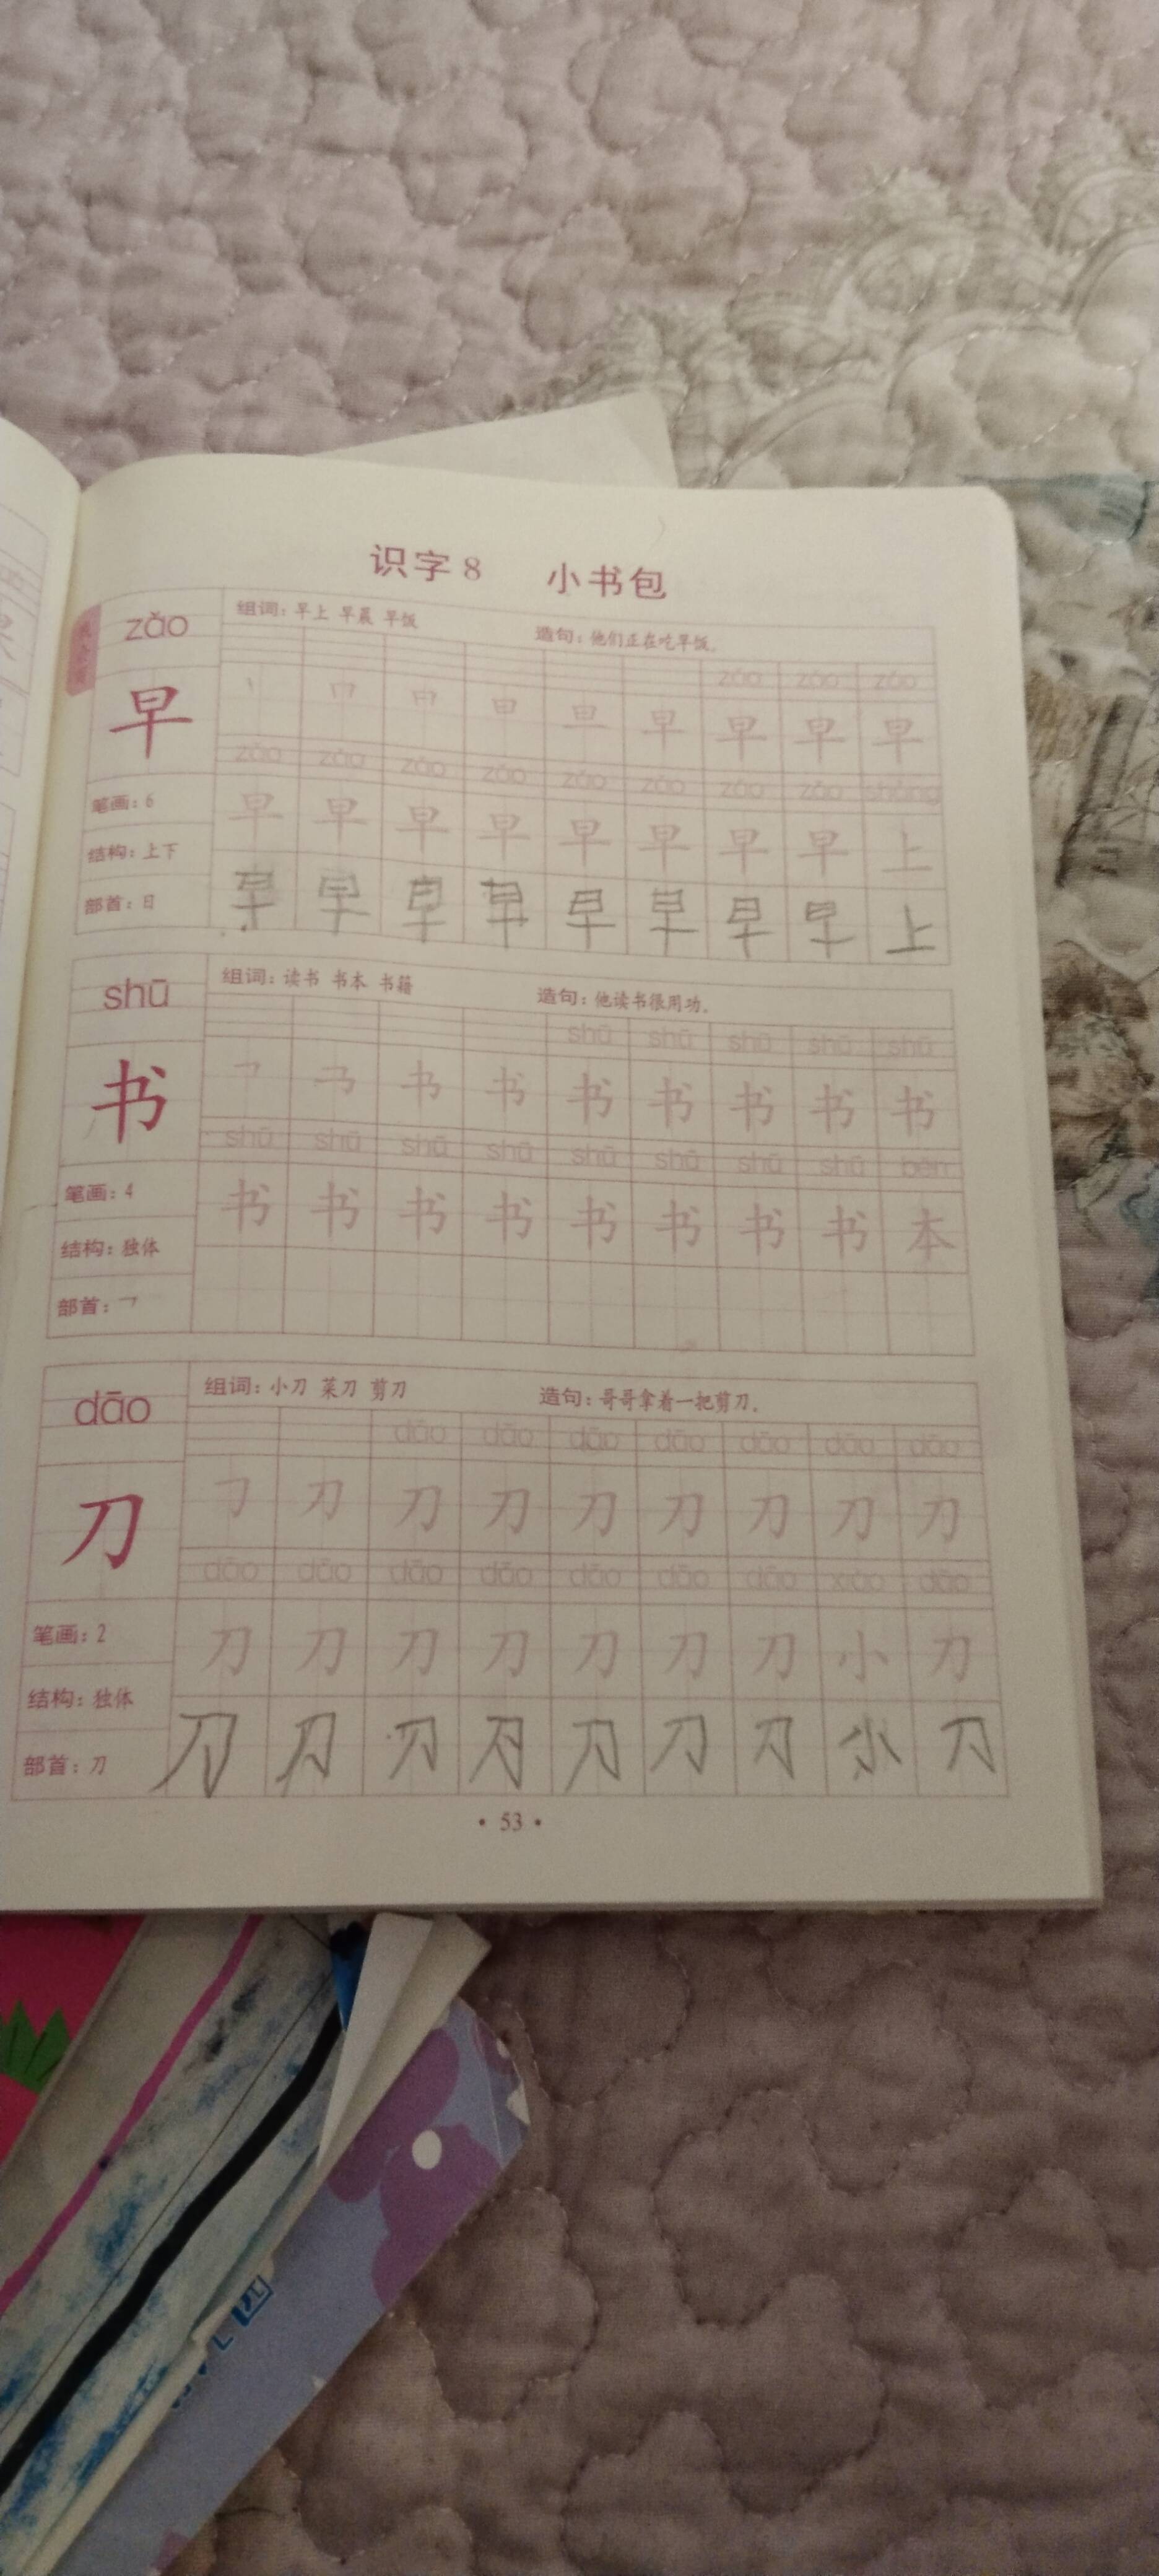 识字8 小书包
zǎo
组词：早上 早晨 早饭 造句：他们正在吃早饭。
zǎo zǎo zǎo
早 丨 早 早 早 早
zǎo zǎo zǎo zǎo zǎo zǎo zǎo zǎo shàng
笔画：6
早 早 早 早 早 早 早 早 上
结构：上下
部首：日
早 早 早 早 早 早 早 早 上
shū
组词：读书 书本 书籍 造句：他读书很用功。
shū shū shū shū shū
书 书 书 书 书 书 书 书
shū shū shū shū shū shū shū shū běn
笔画：4
书 书 书 书 书 书 书 书 本
结构：独体
部首：乛
dāo
组词：小刀 菜刀 剪刀 造句：哥哥拿着一把剪刀。
dāo dāo dāo dāo dāo dāo dāo
刀 𠃌 刀 刀 刀 刀 刀 刀 刀 刀
dāo dāo dāo dāo dāo dāo dāo xiǎo dāo
笔画：2
刀 刀 刀 刀 刀 刀 刀 小 刀
结构：独体
部首：刀
刀 刀 刀 刀 刀 刀 刀 小 刀
• 53 •